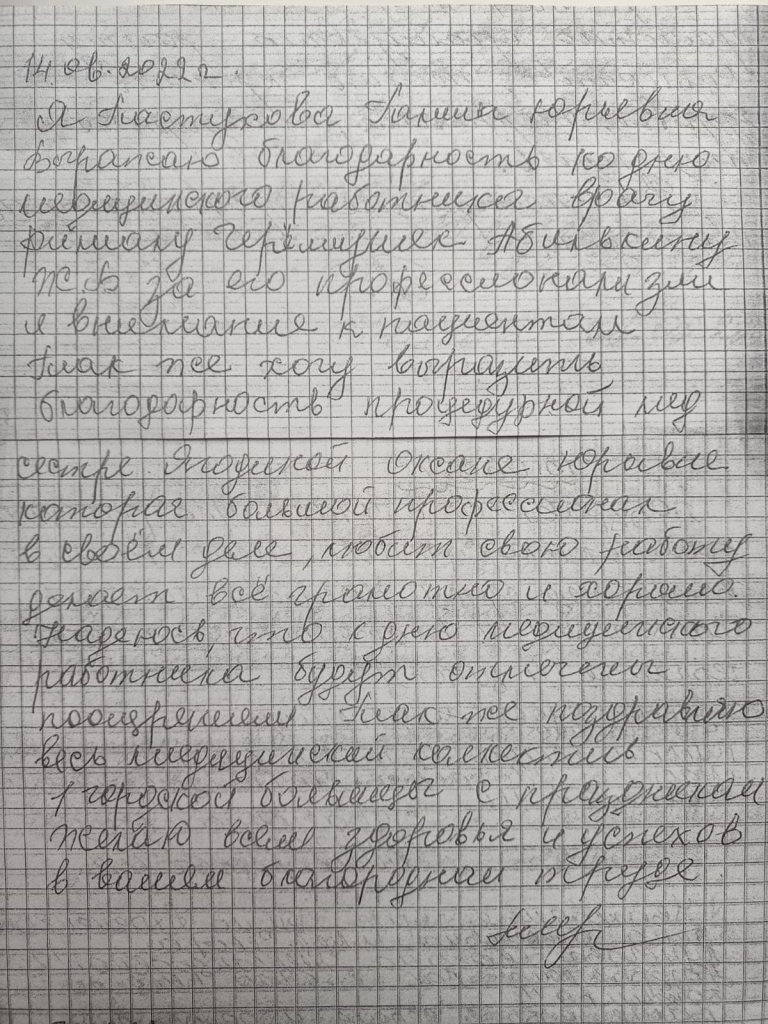 14.06.2022 г.
Я Пастухова Галина Юрьевна
Выражаю благодарность ко дню
медицинского работника врачу
филиалу Черёмушек
Ж.В за его профессионализм
и внимание к пациентам
Так же хочу выразить
благодарность процедурной мед
сестре Ягодиной Оксане Юрьвне
которая большой профессионал
в своём деле, любит свою работу
делает всё грамотно и хорошо.
Надеюсь, что к дню медицинского
работника будут отмечены
поощрением Так же поздравляю
весь медицинский коллектив
1 городской больницы с праздником
желаю всем здоровья и успехов
в вашем благородном труде